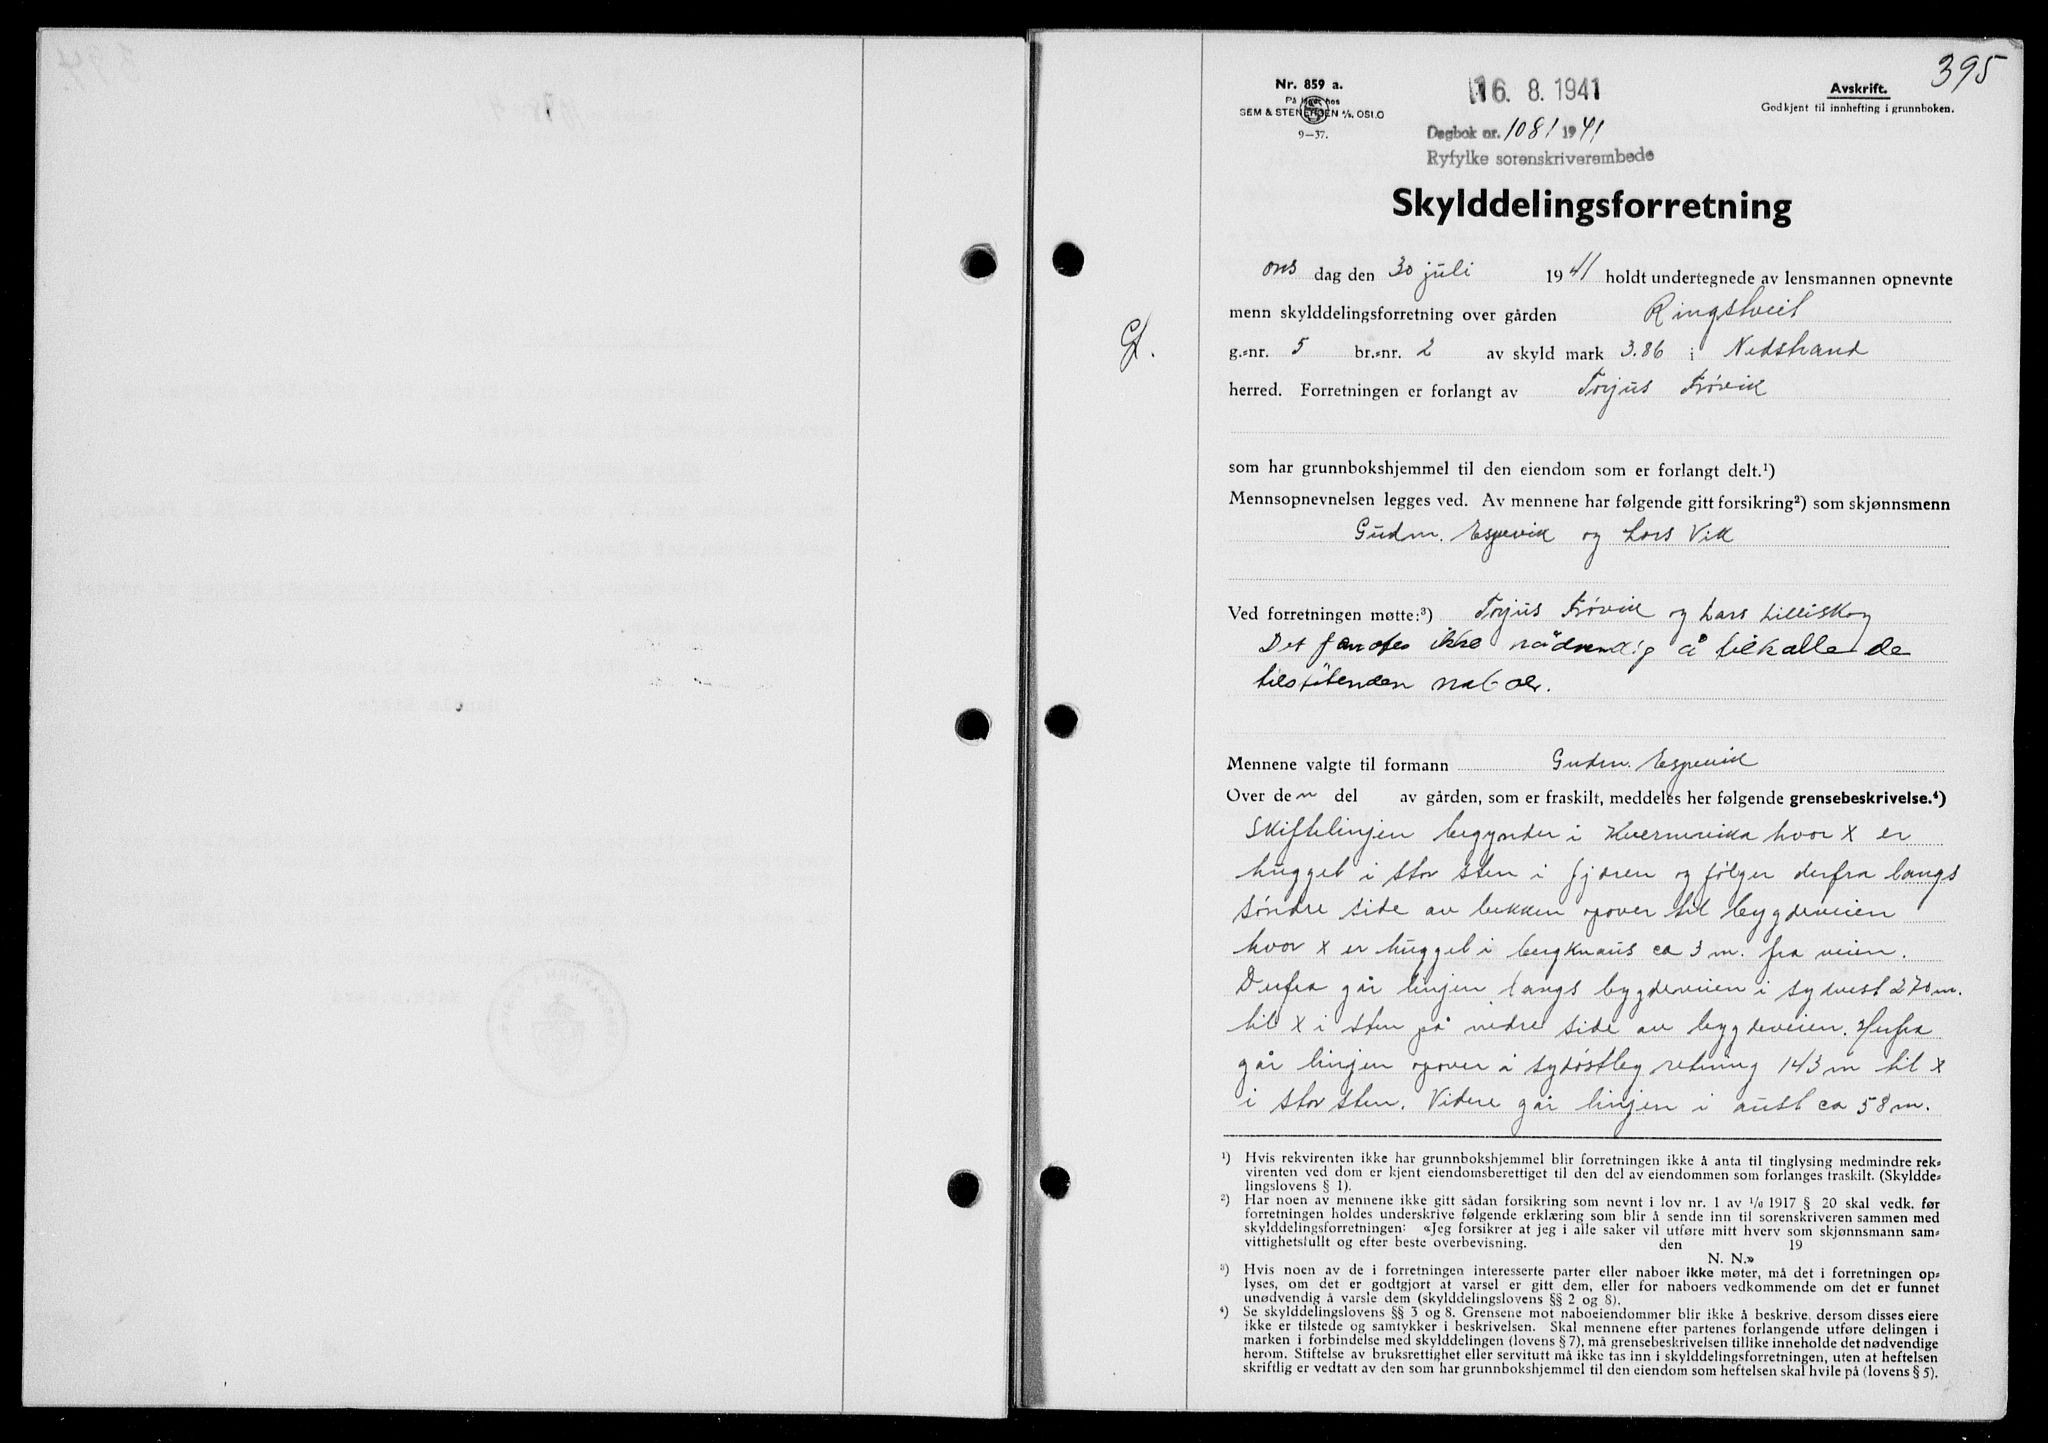 395
Nr. 859 a.
På lager hos
SEM & STENERSEN A/S, OSLO
9—37.
16. 8. 1941
Dagbok nr. 1081 1941
Ryfylke sorenskriverembede
Avskrift.
Godkjent til innhefting i grunnboken.
Skylddelingsforretning
ons dag den 30 juli 1941 holdt undertegnede av lensmannen opnevnte
menn skylddelingsforretning over gården Ringstveit
g.-nr. 5 br.-nr. 2 av skyld mark 3.86 i Nedstrand
herred. Forretningen er forlangt av Torjus Frøvik
som har grunnbokshjemmel til den eiendom som er forlangt delt.¹)
Mennsopnevnelsen legges ved. Av mennene har følgende gitt forsikring²) som skjønnsmenn
Gudm. Espevik og Lars Vik
Ved forretningen møtte:³) Torjus Frøvik og Lars Lilliskog
Det fandtes ikke nødvendig å tilkalle de
tilstøtenden naboer.
Mennene valgte til formann Gudm. Espevik
Over den del av gården, som er fraskilt, meddeles her følgende grensebeskrivelse.⁴)
Skiftelinjen begynder i Kvernevika hvor x er
hugget i stor sten i fjæren og følger derfra langs
søndre side av bekken opover til bygdeveien
hvor x er hugget i bergknaus ca 3 m. fra veien.
Derfra går linjen langs bygdeveien i sydvest 270 m.
til x i sten på nedre side av bygdeveien. Herfra
går linjen opover i sydøstleg retning 143 m til x
i stor sten. Videre går linjen i aust ca 58 m.
¹) Hvis rekvirenten ikke har grunnbokshjemmel blir forretningen ikke å anta til tinglysing medmindre rek-
virenten ved dom er kjent eiendomsberettiget til den del av eiendommen som forlanges fraskilt. (Skyldde-
lingslovens § 1).
²) Har noen av mennene ikke gitt sådan forsikring som nevnt i lov nr. 1 av 1/6 1917 § 20 skal vedk. før
forretningen holdes underskrive følgende erklæring som blir å sende inn til sorenskriveren sammen med
skylddelingsforretningen: «Jeg forsikrer at jeg i alle saker vil utføre mitt hverv som skjønnsmann sam-
vittighetsfullt og efter beste overbevisning. den 19
N. N.»
³) Hvis noen av de i forretningen interesserte parter eller naboer ikke møter, må det i forretningen op-
lyses, om det er godtgjort at varsel er gitt dem, eller for naboers vedkommende om det er funnet
unødvendig å varsle dem (skylddelingslovens §§ 2 og 8).
⁴) Se skylddelingslovens §§ 3 og 8. Grensene mot naboeiendommer blir ikke å beskrive, dersom disses eiere
ikke er tilstede og samtykker i beskrivelsen. Skal mennene efter partenes forlangende utføre delingen i
marken i forbindelse med skylddelingen (lovens § 7), må grensebeskrivelsen tillike inneholde det nødvendige
herom. Stiftelse av bruksrettighet eller servitutt må ikke tas inn i skylddelingsforretningen, uten at heftelsen
skriftlig er vedtatt av den som har grunnbokshjemmel til den eiendom som heftelsen skal hvile på (lovens § 5).